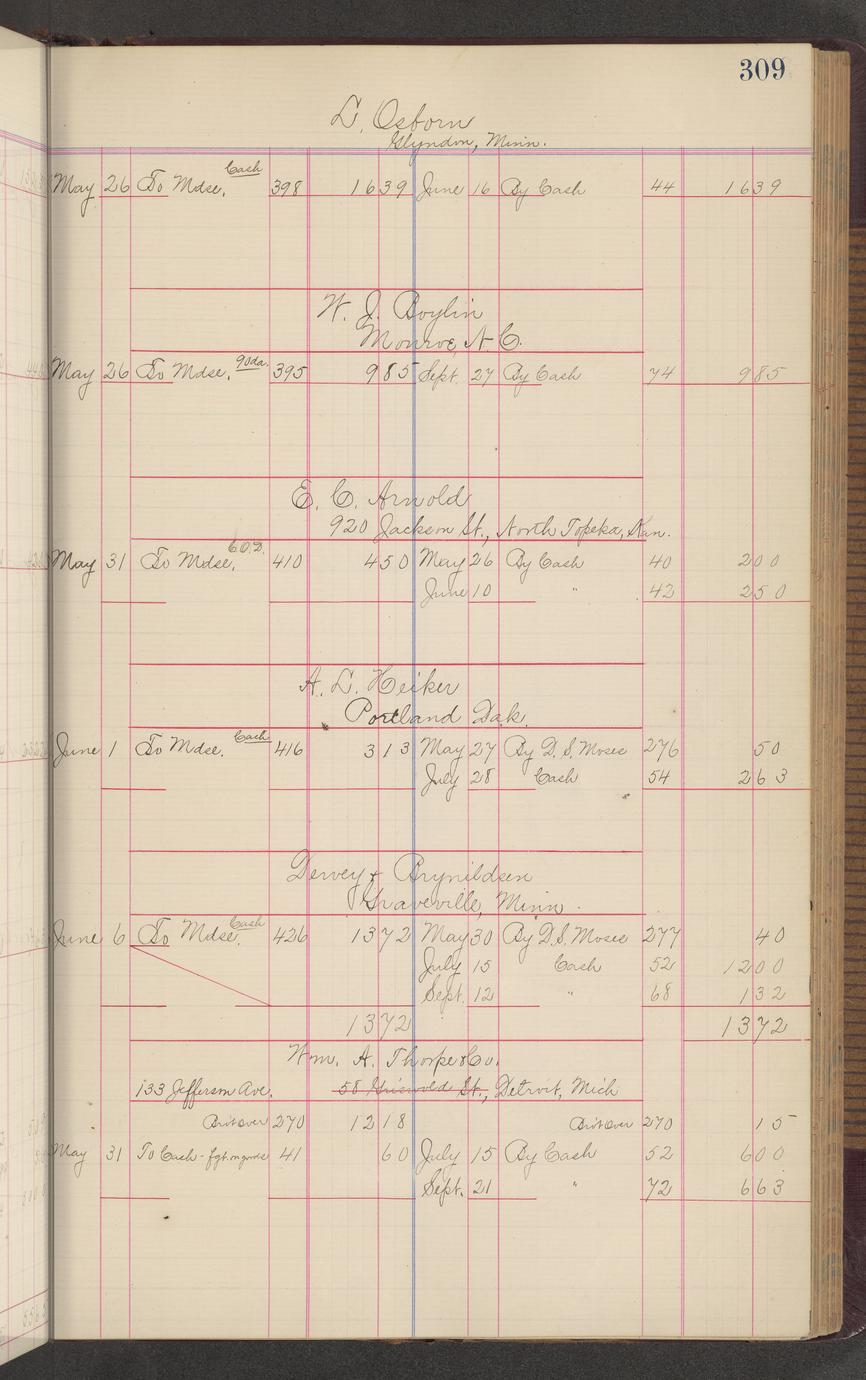 309
L. Osborn
Glyndon, Minn.
Cash
May 26 To Mdse. 398 16 39 June 16 By Cash 44 16 39
W. J. Boylin
Monroe, N.C.
90da.
May 26 To Mdse. 395 9 85 Sept. 27 By Cash 74 9 85
E. C. Arnold
920 Jackson St., North Topeka, Kan.
C.O.D.
May 31 To Mdse. 410 4 50 May 26 By Cash 40 2 00
June 10 " 42 2 50
A. L. Heiker
Portland Dak.
Cash
June 1 To Mdse. 416 3 13 May 27 By D. S. Moses 276 50
July 28 Cash 54 2 63
Dervey & Brynildsen
Graveville, Minn.
Cash
June 6 To Mdse. 426 13 72 May 30 By D. S. Moses 277 40
July 15 Cash 52 12 00
Sept. 12 " 68 1 32
13 72 13 72
Wm. A. Thorpe & Co.
133 Jefferson Ave. 58 Griswold St., Detroit, Mich
Brot over 270 12 18 Brot over 270 15
May 31 To Cash - fgt. on goods 41 60 July 15 By Cash 52 6 00
Sept. 21 " 72 6 63